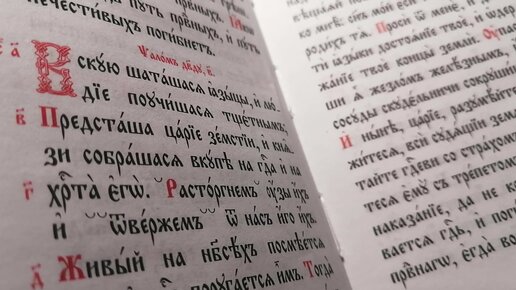 путь првⷣныхъ, и҆
нечести́выхъ поги́бнетъ.
Ѱало́мъ дв҃дꙋ, в҃.
а҃ Вскꙋ́ю шата́шасѧ ꙗ҆зы́цы, и҆ лю́-
дїе поꙋчи́шасѧ тщє́тнымъ;
в҃ Предста́ша ца́рїе зе́мстїи, и҆ кнѧ́-
зи собра́шасѧ вкꙋ́пѣ на гдⷭ҇а и҆ на
г҃ хрⷭ҇та̀ є҆гѡ̀. Расто́ргнемъ ᲂу҆́зы и҆́хъ
и҆ ѿве́ржемъ ѿ на́съ и҆́го и҆́хъ.
д҃ Живы́й на нб҃сѣ́хъ посмѣе́тсѧ
порꙋга́етсѧ и҆̀мъ. Тогда̀
мнѣ̀: сн҃ъ мо́й є҆сѝ
роди́хъ тѧ̀. Просѝ ѿ менє̀, и҆
ꙗ҆зы́ки достоѧ́нїе твоѐ, и҆
жа́нїе твоѐ концы̀ землѝ.
ши ѧ҆̀ жезло́мъ желѣ́знымъ,
сосꙋ́ды скꙋдє́льничи сокрꙋши́
И҆ ны́нѣ, ца́рїе, разꙋмѣ́йте
жи́тесѧ, всѝ сꙋдѧ́щїи землѝ
та́йте гдⷭ҇еви со стра́хомъ
тесѧ є҆мꙋ̀ съ тре́петомъ
наказа́нїе, да не ког
ваетсѧ гдⷭ҇ь, и҆ поги
првⷣнагѡ, є҆гда̀ во